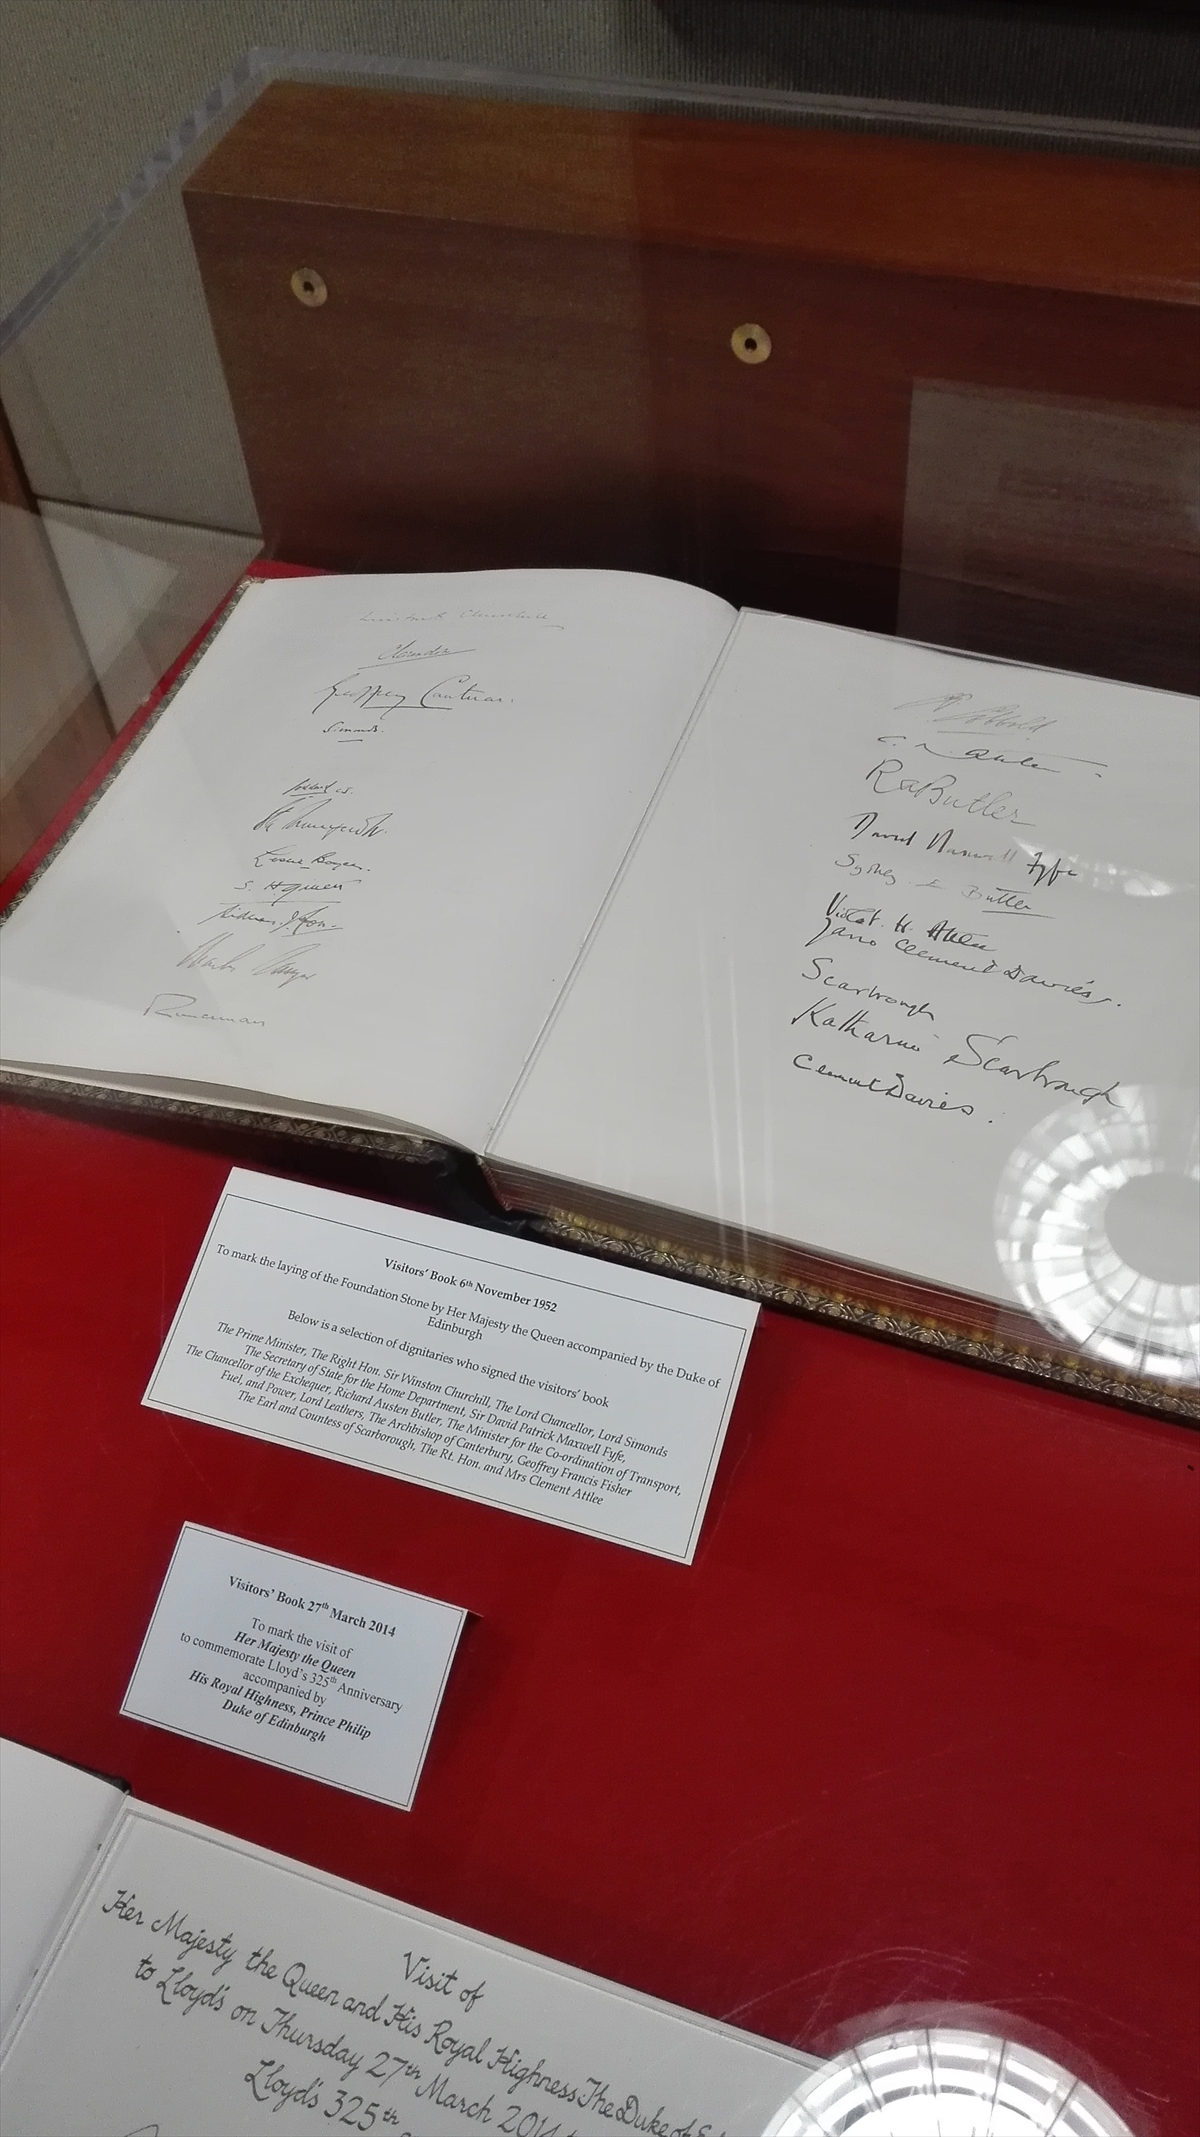 Winston Churchill
Geoffrey Cantuar:
Simonds.
Leslie Bowes.
Runciman
Cobbold
C. R. Attlee
R A Butler
David Maxwell Fyfe
Sydney E Butler
Violet H. Attlee
Jano Clement Davies.
Scarbrough
Katharine Scarbrough
Clement Davies.
Visitors' Book 6th November 1952
To mark the laying of the Foundation Stone by Her Majesty the Queen accompanied by the Duke of
Edinburgh
Below is a selection of dignitaries who signed the visitors' book
The Prime Minister, The Right Hon. Sir Winston Churchill, The Lord Chancellor, Lord Simonds
The Secretary of State for the Home Department, Sir David Patrick Maxwell Fyfe,
The Chancellor of the Exchequer, Richard Austen Butler, The Minister for the Co-ordination of Transport,
Fuel, and Power, Lord Leathers, The Archbishop of Canterbury, Geoffrey Francis Fisher
The Earl and Countess of Scarborough, The Rt. Hon. and Mrs Clement Attlee
Visitors' Book 27th March 2014
To mark the visit of
Her Majesty the Queen
to commemorate Lloyd's 325th Anniversary
accompanied by
His Royal Highness, Prince Philip
Duke of Edinburgh
Visit of
Her Majesty the Queen and His Royal Highness The Duke of
to Lloyd's on Thursday 27th March 2014
Lloyd's 325th